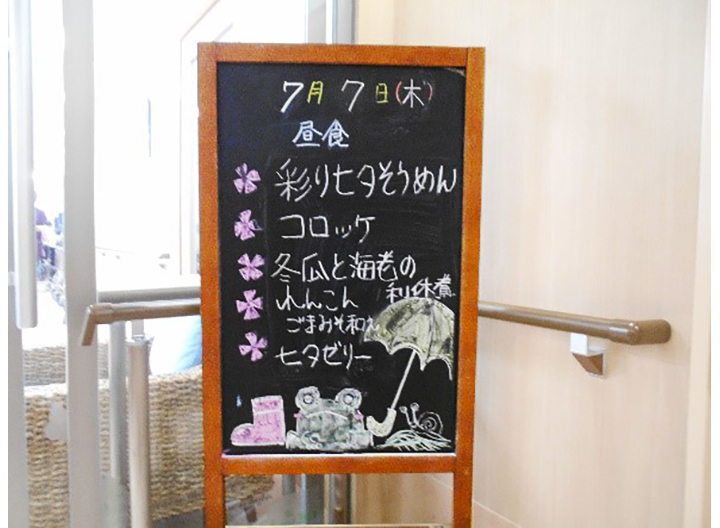 7月7日(木)
昼食
彩り七夕そうめん
コロッケ
冬瓜と海老の
利休煮
れんこん
ごまみそ和え
七夕ゼリー